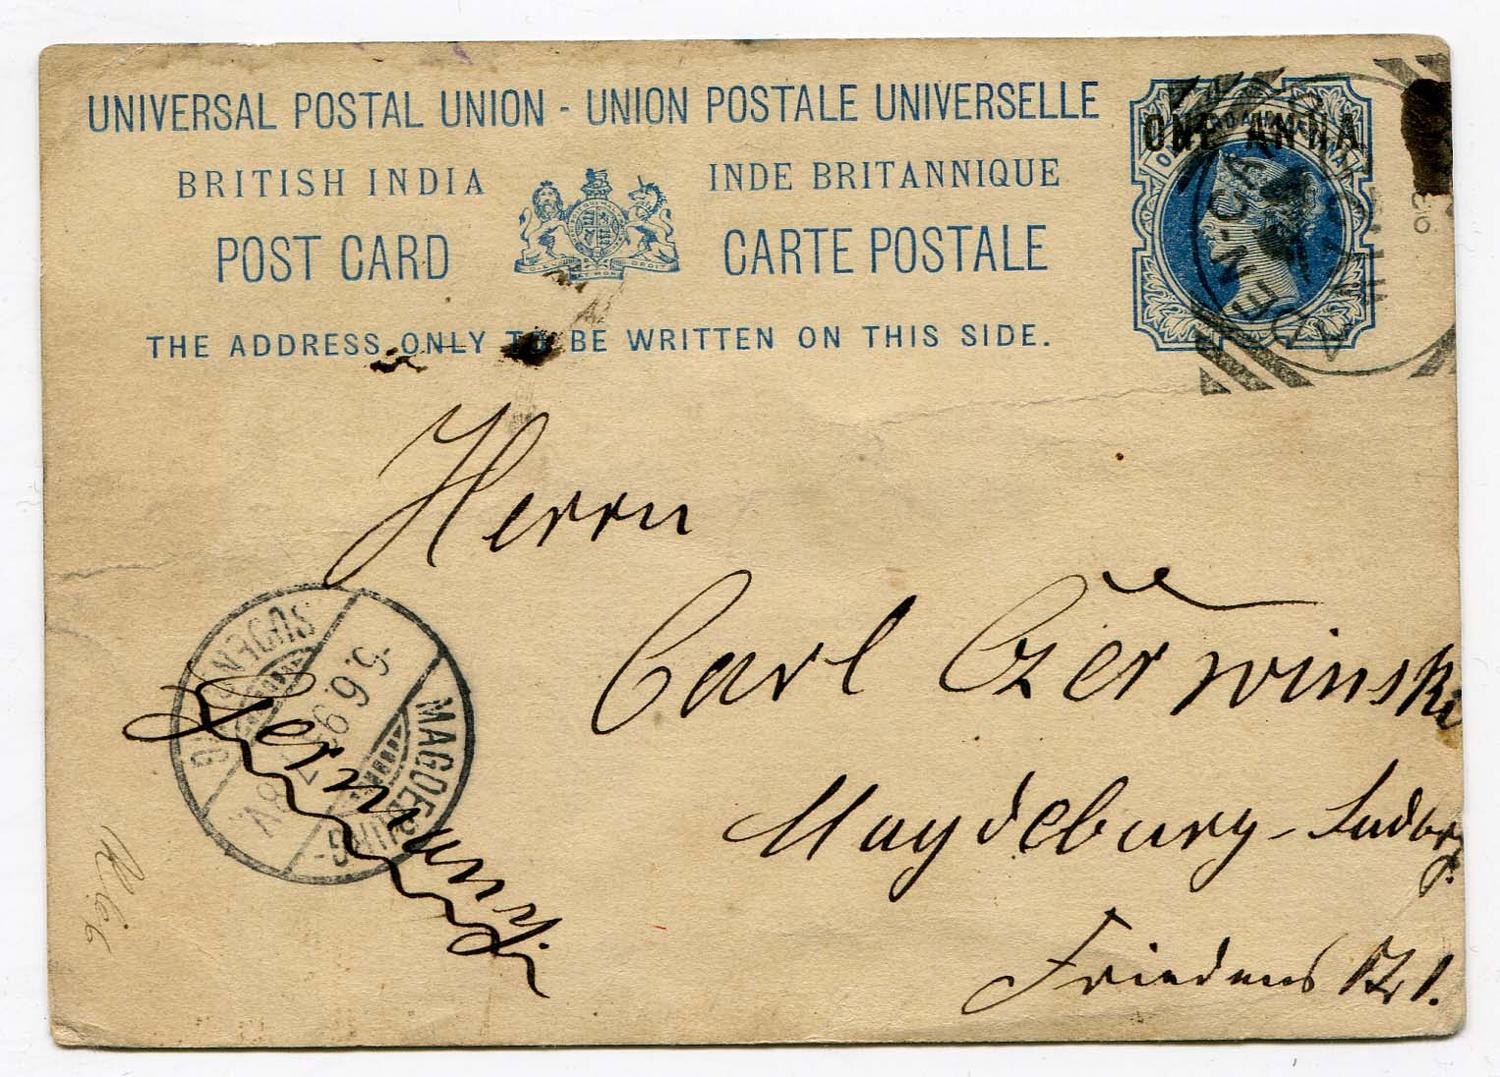 UNIVERSAL POSTAL UNION - UNION POSTALE UNIVERSELLE
BRITISH INDIA
INDE BRITANNIQUE
POST CARD
CARTE POSTALE
THE ADDRESS ONLY TO BE WRITTEN ON THIS SIDE.
ONE ANNA
Herrn
Carl Czerwinski
Magdeburg-
Friedens
Germany
MAGDEBURG-